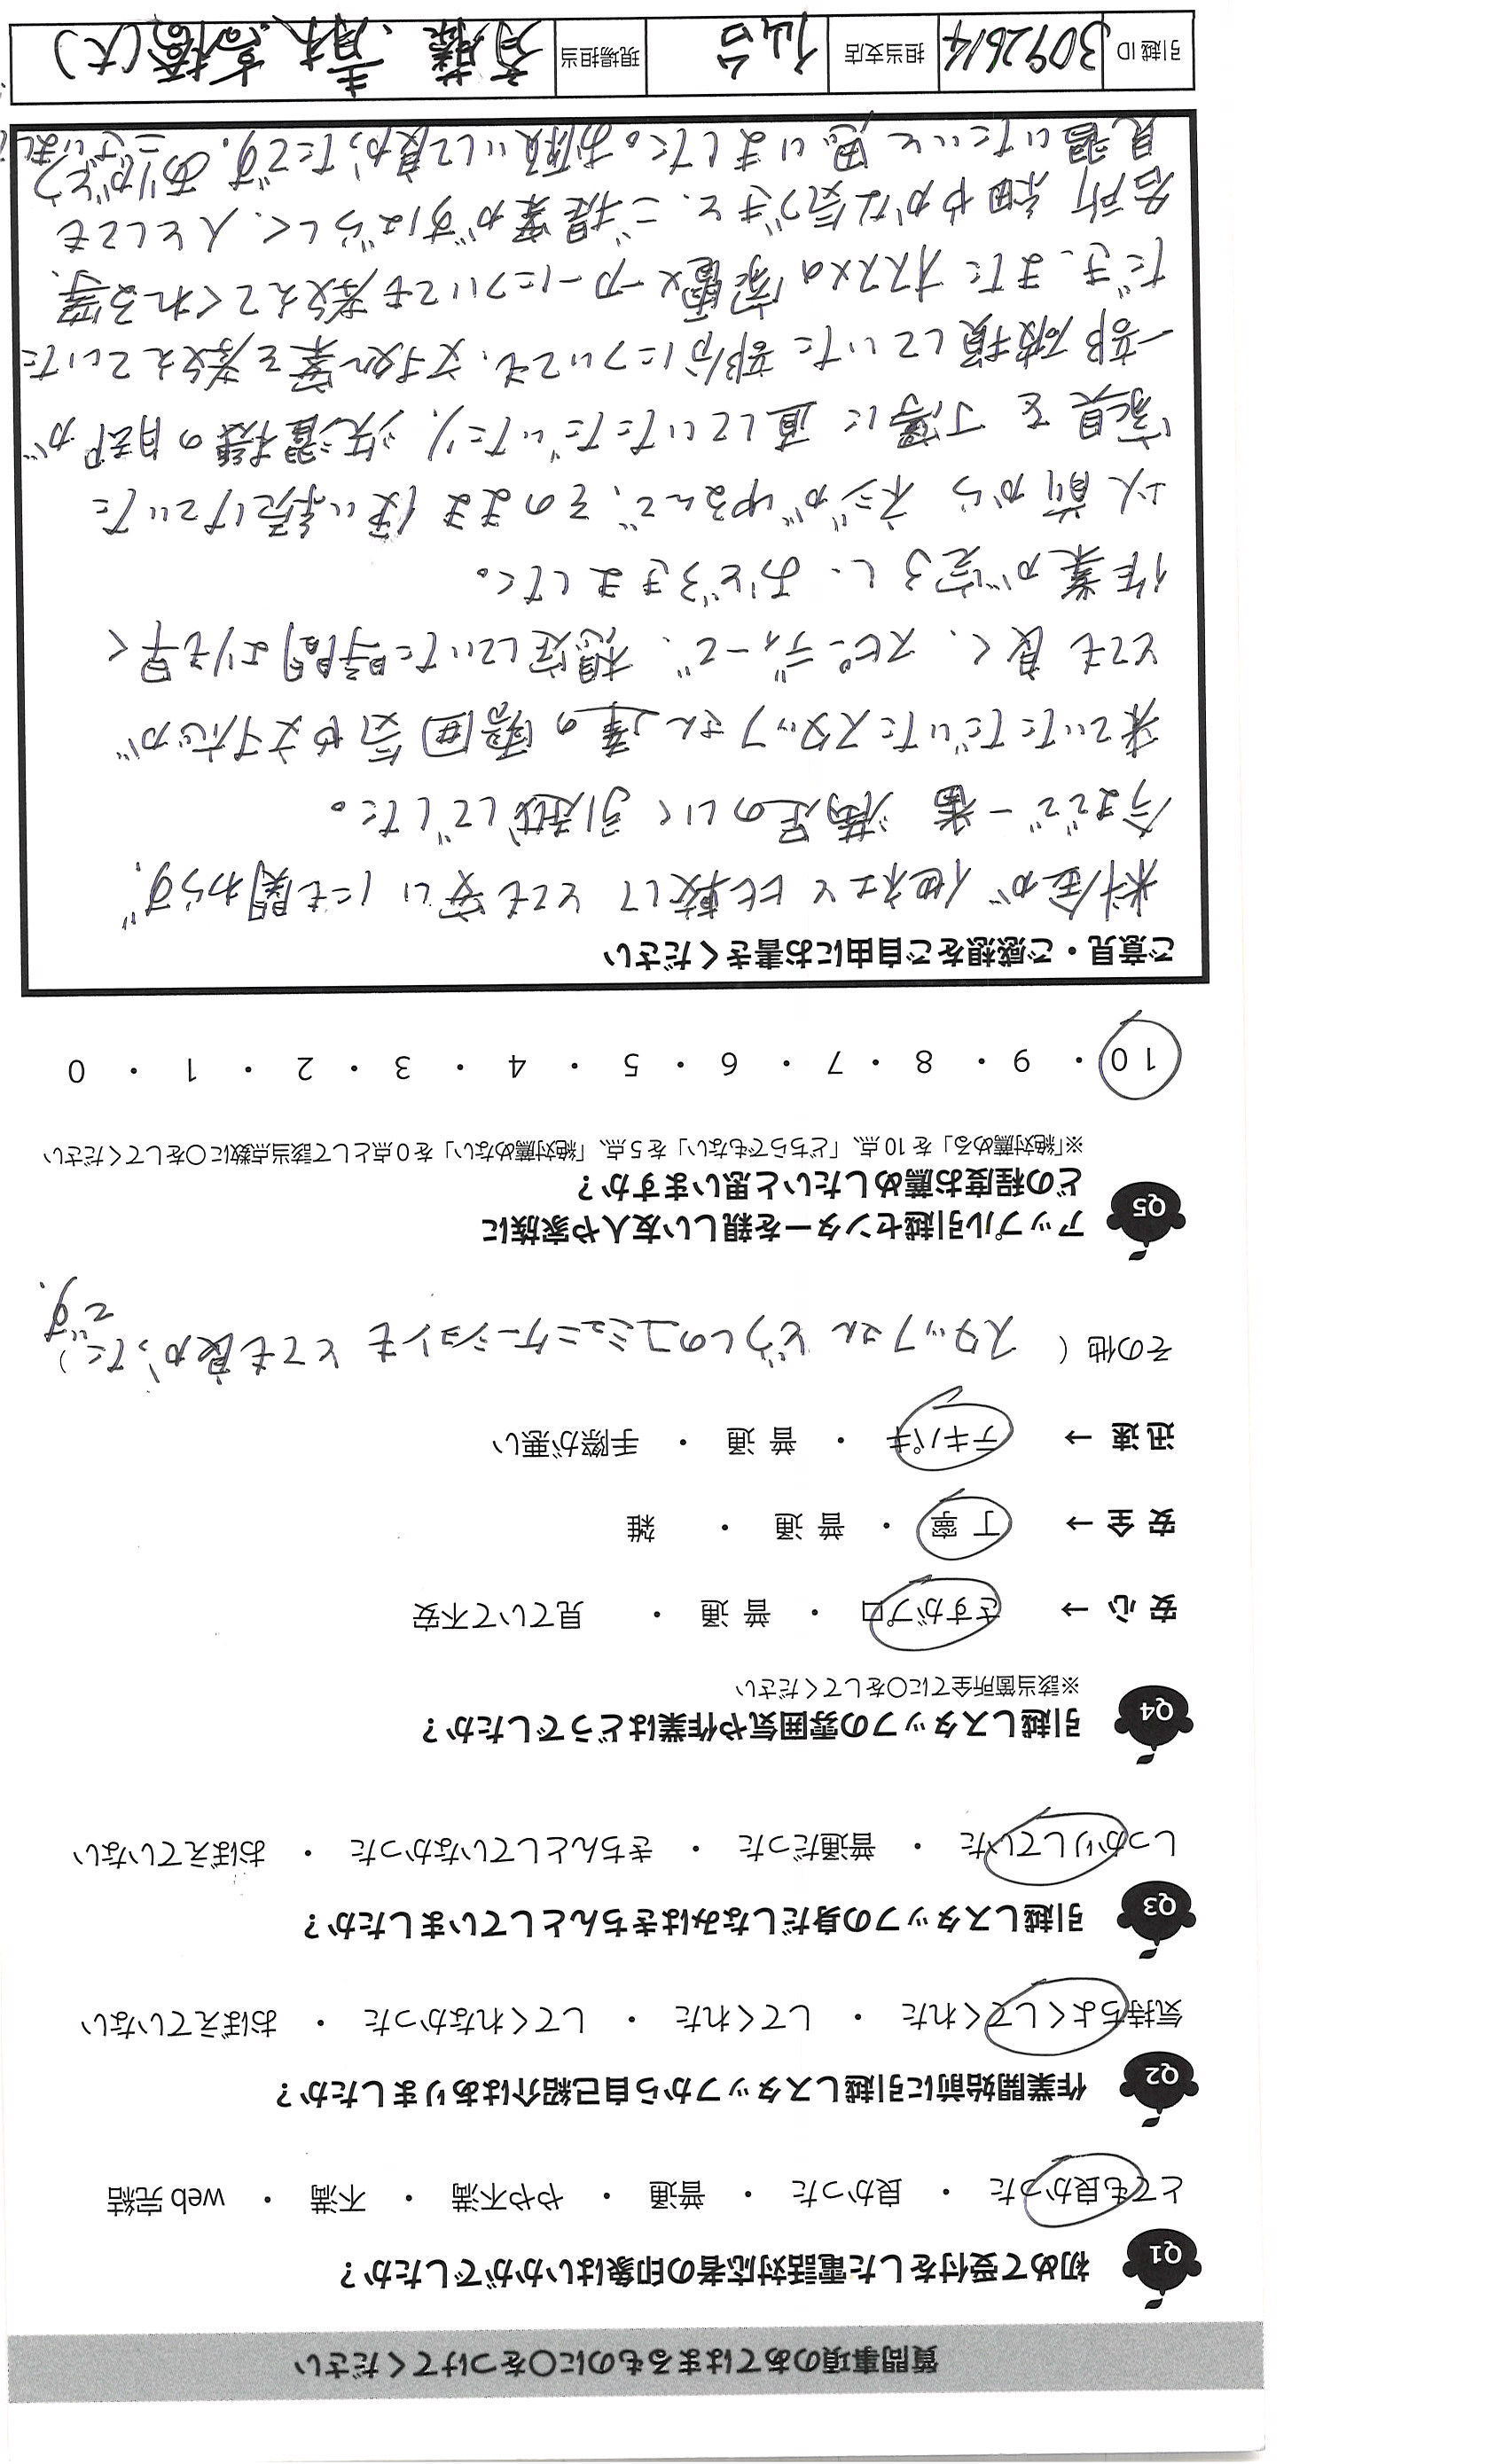 質問事項のあてはまるものに〇をつけてください
Q1 初めて受付をした電話対応者の印象はいかがでしたか？
とても良かった ・ 良かった ・ 普通 ・ やや不満 ・ 不満 ・ web 完結
Q2 作業開始前に引越しスタッフから自己紹介はありましたか？
気持ちよくしてくれた ・ してくれた ・ してくれなかった ・ おぼえていない
Q3 引越しスタッフの身だしなみはきちんとしていましたか？
しっかりしていた ・ 普通だった ・ きちんとしていなかった ・ おぼえていない
Q4 引越しスタッフの雰囲気や作業はどうでしたか？
※該当箇所全てに〇をしてください
安 心 → さすがプロ ・ 普 通 ・ 見ていて不安
安 全 → 丁 寧 ・ 普 通 ・ 雑
迅 速 → テキパキ ・ 普 通 ・ 手際が悪い
その他 （ スタッフさんどうしのコミュニケーションもとても良かったです。）
Q5 アップル引越センターを親しい友人や家族に
どの程度お薦めしたいと思いますか？
※「絶対薦める」を 10 点、「どちらでもない」を 5 点、「絶対薦めない」を 0 点として該当点数に〇をしてください
10 ・ 9 ・ 8 ・ 7 ・ 6 ・ 5 ・ 4 ・ 3 ・ 2 ・ 1 ・ 0
ご意見・ご感想をご自由にお書きください
料金が他社と比較してとても安いにも関わらず、
今までで一番 満足のいく引越しでした。
来ていただいたスタッフさん達の雰囲気や対応が
とても良く、スピーディーで、想定していた時間よりも早く
作業が完了し、おどろきました。
以前からネジがゆるんで、そのまま使い続けていた
家具を丁寧に直していただいたり、洗濯機の内部が
一部破損していた部分についても、対処案を考えていた
だき、またオススメの家電メーカーについても考えてくれる等、
各所 細やかな気づきと、ご提案がすばらしく、人としても
見習いたいと思いました。お願いして良かったです。ありがとう
ございまし
引越 ID 3092614 担当支店 仙台 現場担当 斉藤、青木、高橋(大)